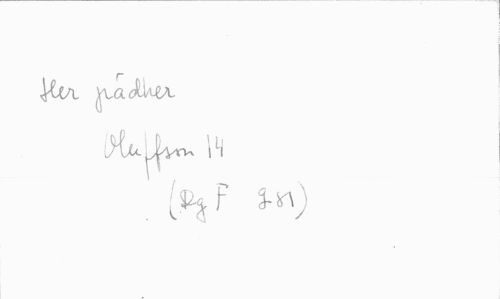 Her pädher
Oluffson 14
(Rg F 981)